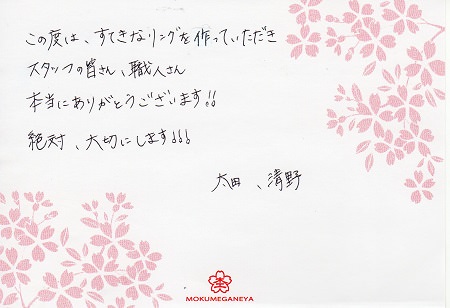 この度は、すてきなリングを作っていただき
スタッフの皆さん、職人さん
本当にありがとうございます!!
絶対、大切にします!!!
太田、清野
MOKUMEGANEYA